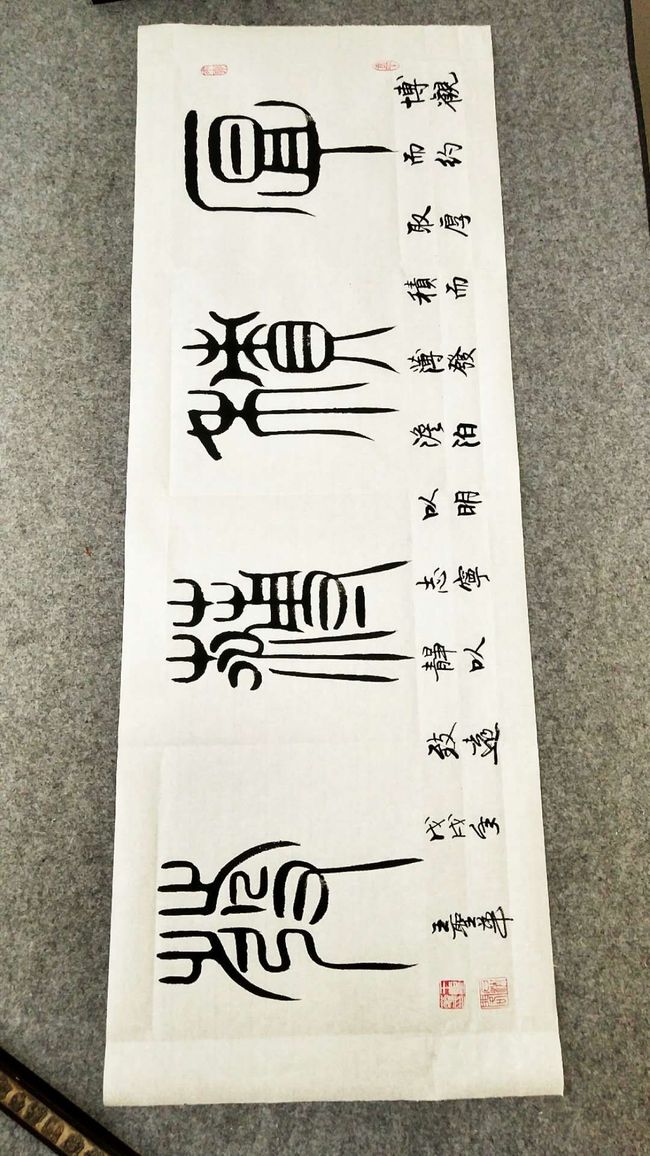 厚積薄發
博觀
而約
取厚
積而
薄發
澹泊
以明
志寧
靜以
致遠
戊戌